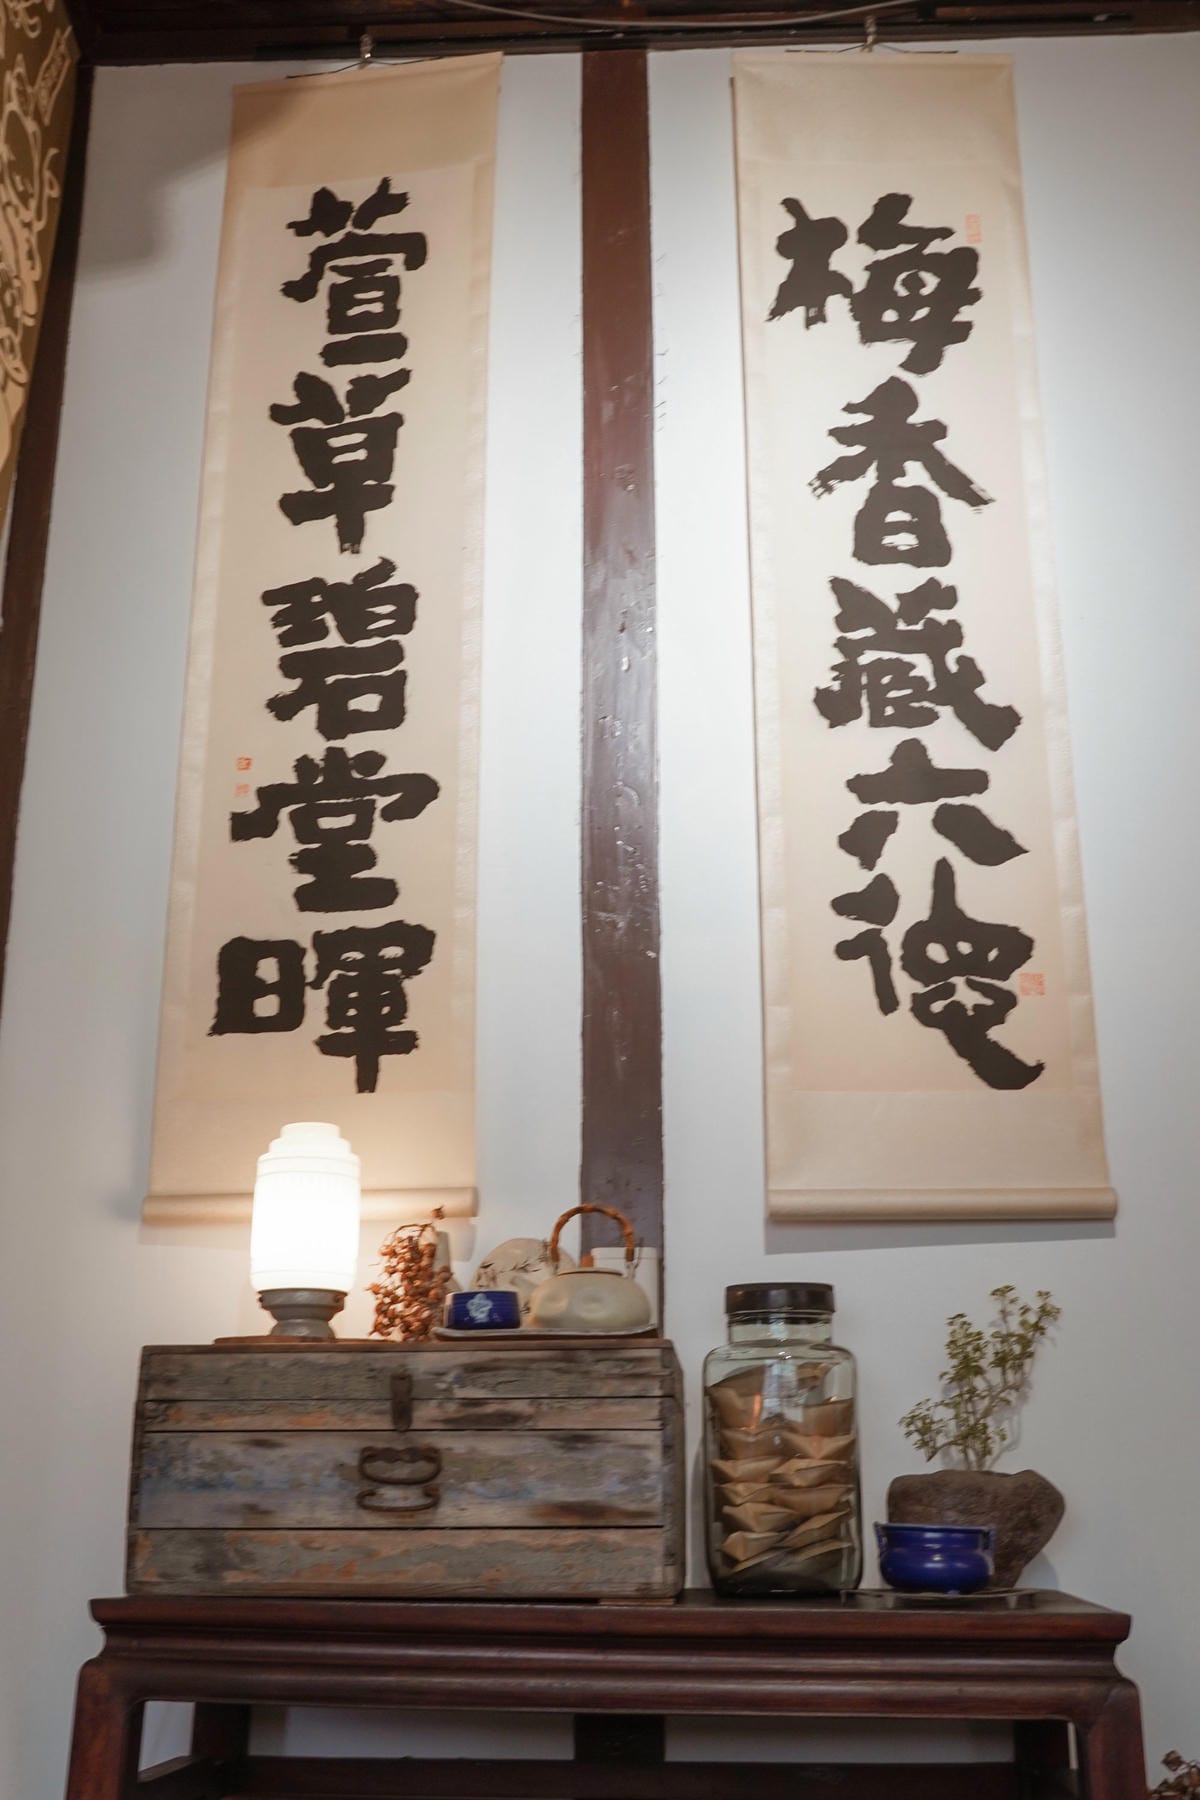 梅香藏六德
萱草碧堂暉